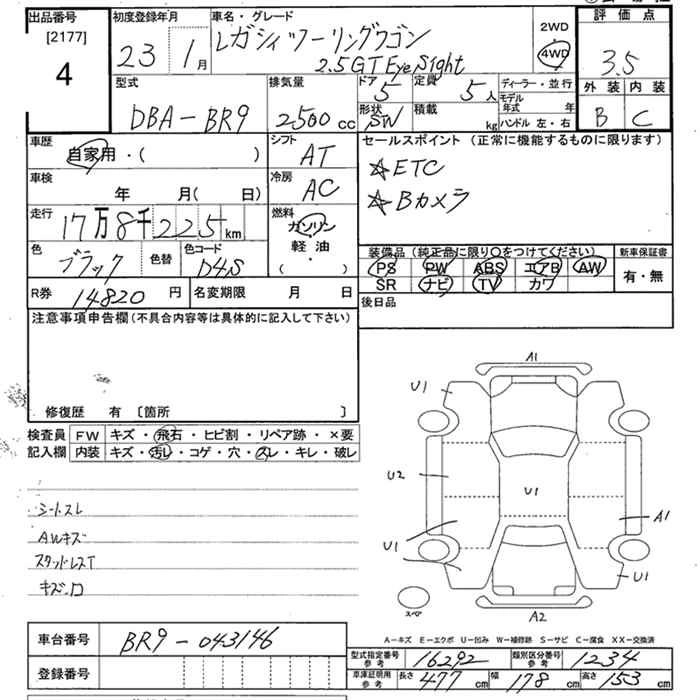 出品番号 初度登録年月 車名・グレード 2WD 評価点
[2177] 23 1月 レガシィツーリングワゴン 4WD 3.5
4 2.5GT EyeSight
型式 排気量 ドア 5 定員 5人 ディーラー・並行 外装 内装
DBA-BR9 2500cc 形状 SW 積載 kg モデル年式 年 B C
ハンドル 左・右
車歴 シフト セールスポイント (正常に機能するものに限ります)
自家用・( ) AT ☆ETC
車検 冷房 ☆Bカメラ
年 月(日) AC
走行 燃料
17万8千225km ガソリン
色 色替 色コード 軽油 装備品(純正品に限り〇をつけてください) 新車保証書
ブラック D4S ・( ) PS PW ABS エアB AW 有・無
R券 14820円 名変期限 月 日 SR ナビ TV カワ
後日品
注意事項申告欄(不具合内容等は具体的に記入して下さい)
修復歴 有 〔箇所 〕
検査員 FW キズ・飛石・ヒビ割・リペア跡・×要
記入欄 内装 キズ・汚レ・コゲ・穴・スレ・キレ・破レ
シートスレ
AWキズ
スタッドレスT
A1
U1
U2
U1
A1
U1
U1
スペア
A2
A-キズ E-エクボ U-凹み W-補修跡 S-サビ C-腐食 XX-交換済
車台番号 BR9-043146
登録番号
型式指定番号 参考 16292 類別区分番号 参考 1234
車庫証明用 参考 長さ 477cm 幅 178cm 高さ 153cm